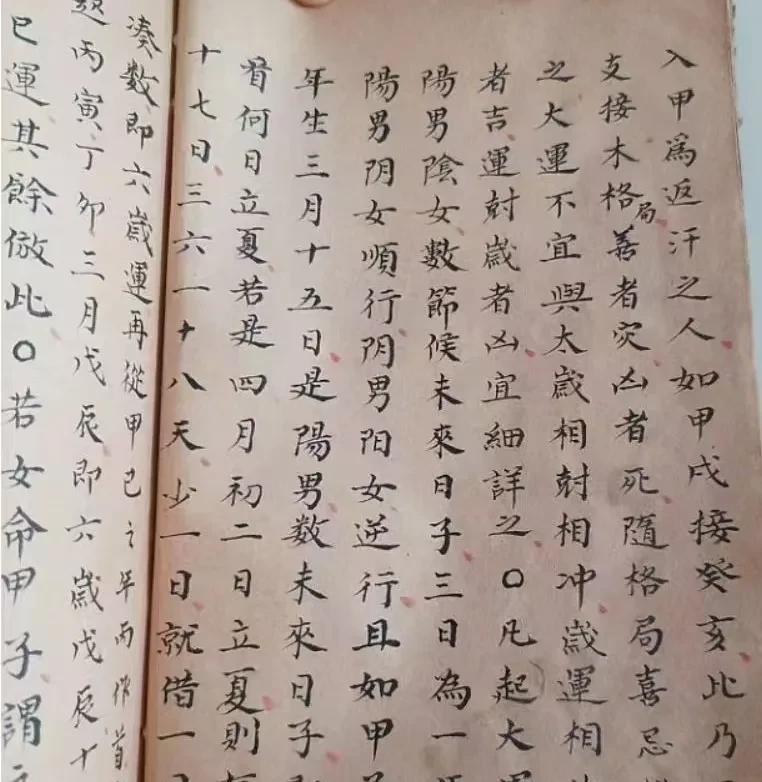 入甲為返汗之人如甲戌接癸亥比乃
支接木格局善者灾凶者死随格局喜忌
之大運不宜與太歲相尅相冲歲運相
者吉運尅歲者凶宜細詳之〇凡起大
陽男陰女數節候未來日子三日為一
陽男阴女順行阴男阳女逆行且如甲
年生三月十五日是陽男数未來日子
看何日立夏若是四月初二日立夏則
十七日三六一十八天少一日就借一
凑数即六歲運再從甲己之年丙作首
丙寅丁卯三月戊辰即六歲戊辰十
巳運其餘倣此〇若女命甲子謂